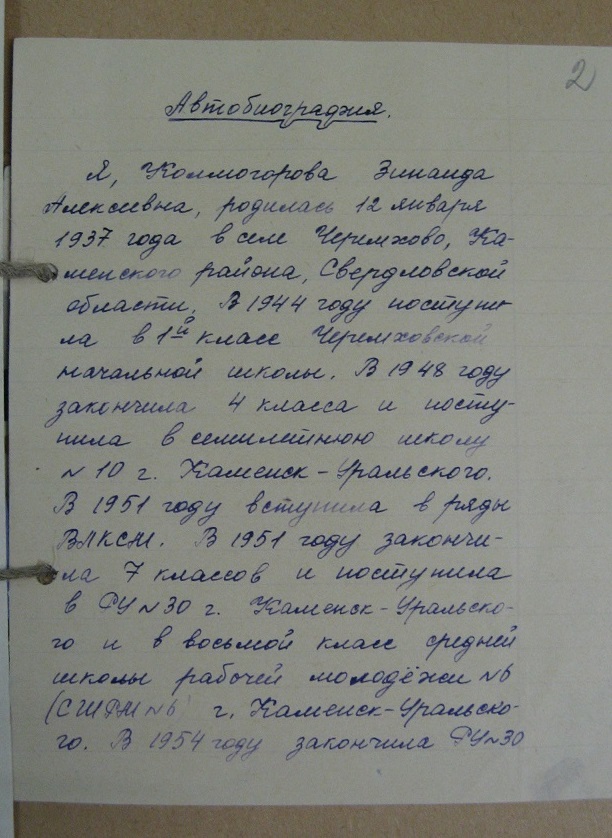 2
Автобиография.
Я, Колмогорова Зинаида
Алексеевна, родилась 12 января
1937 года в селе Черемхово, Ка-
менского района, Свердловской
области. В 1944 году поступи-
ла в 1ый класс Черемховской
начальной школы. В 1948 году
закончила 4 класса и посту-
пила в семилетнюю школу
№10 г. Каменск-Уральского.
В 1951 году вступила в ряды
ВЛКСМ. В 1951 году закончи-
ла 7 классов и поступила
в РУ №30 г. Каменск-Уральско-
го и в восьмой класс средней
школы рабочей молодёжи №6
(СШРМ №6) г. Каменск-Уральско-
го. В 1954 году закончила РУ №30